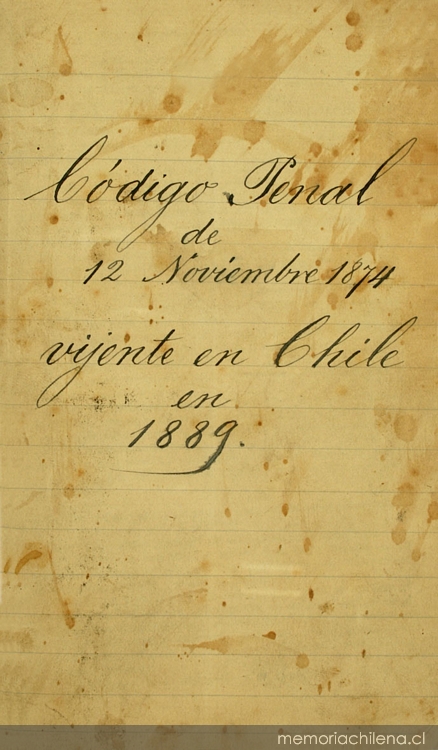 Código Penal
de
12 Noviembre 1874
vijente en Chile
en
1889.
memoriachilena.cl